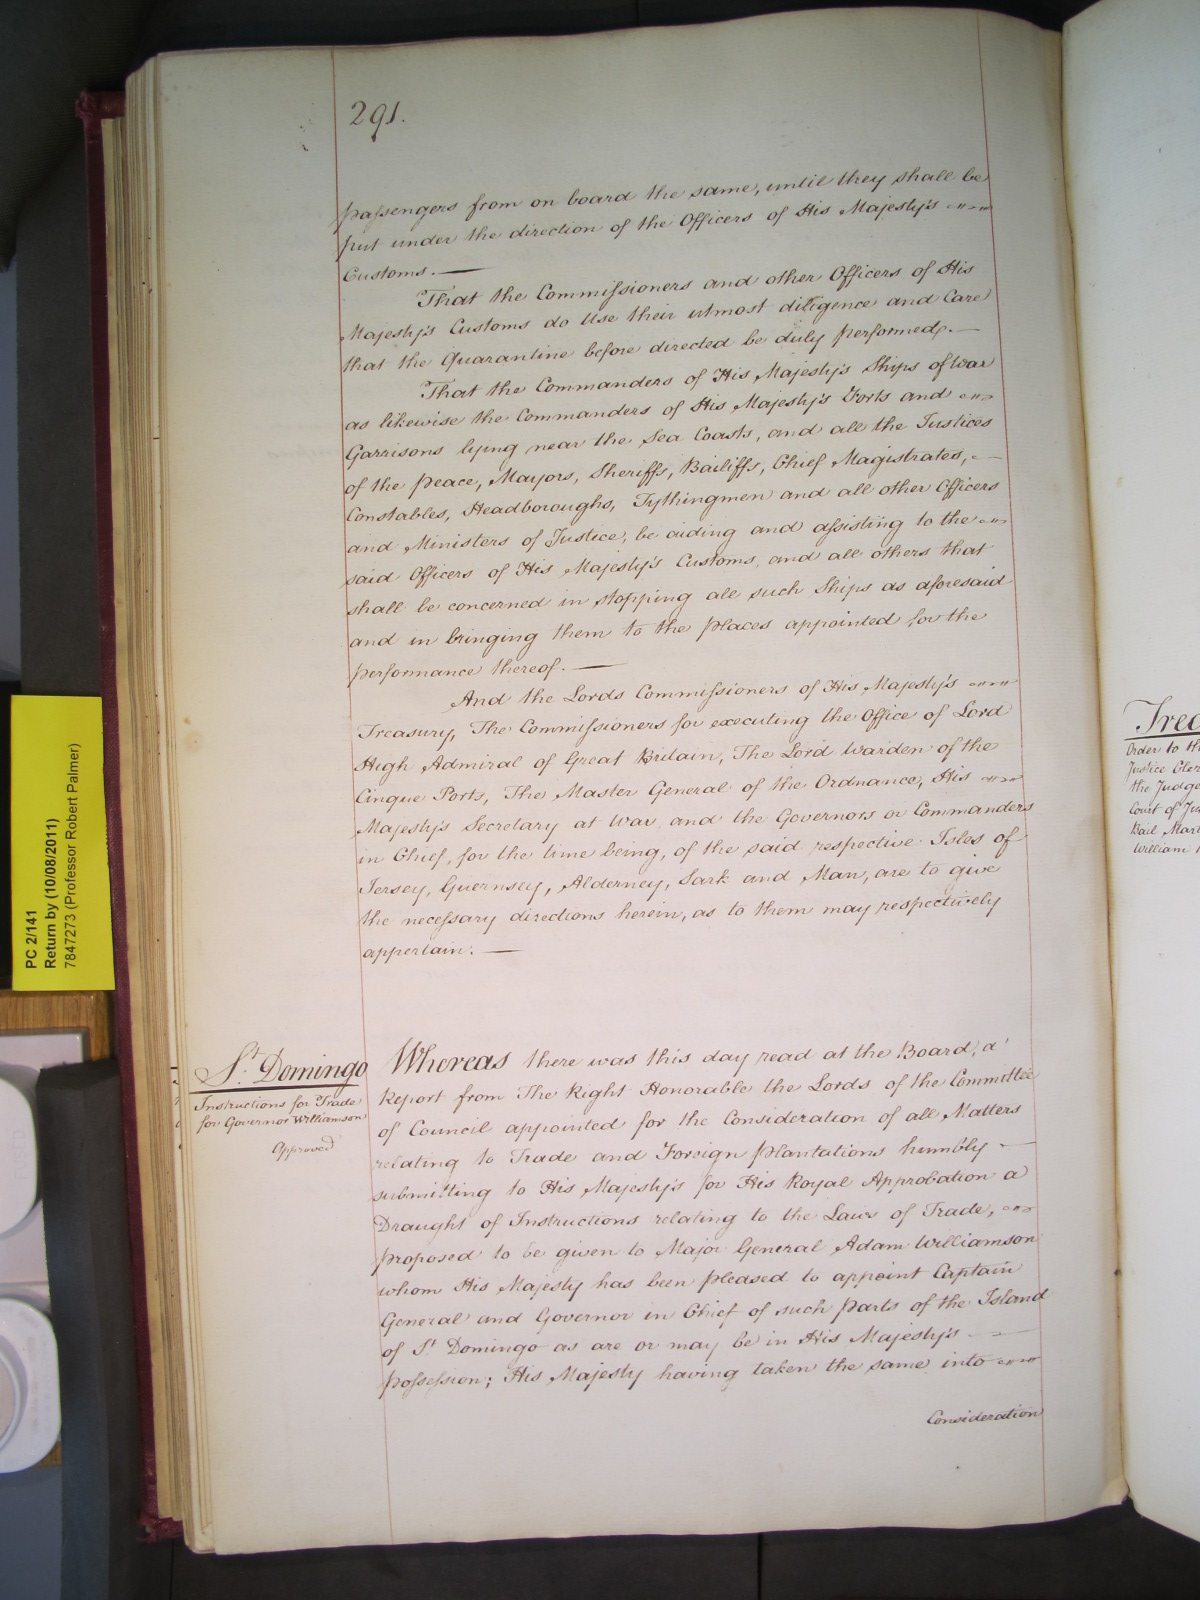 291.
passengers from on board the same, until they shall be
put under the direction of the Officers of His Majesty's
Customs. —
That the Commissioners and other Officers of His
Majesty's Customs do Use their utmost diligence and Care
that the Quarantine before directed be duly performed. —
That the Commanders of His Majesty's Ships of War
as likewise the Commanders of His Majesty's Forts and
Garrisons lying near the Sea Coasts, and all the Justices
of the Peace, Mayors, Sheriffs, Bailiffs, Chief Magistrates, —
Constables, Headboroughs, Tythingmen and all other Officers
and Ministers of Justice, be aiding and assisting to the
said Officers of His Majesty's Customs, and all others that
shall be concerned in stopping all such Ships as aforesaid
and in bringing them to the Places appointed for the
performance thereof. —
And the Lords Commissioners of His Majesty's
Treasury, The Commissioners for executing the Office of Lord
High Admiral of Great Britain, The Lord Warden of the
Cinque Ports, The Master General of the Ordnance, His
Majesty's Secretary at War, and the Governors or Commanders
in Chief, for the time being, of the said respective Isles of
Jersey, Guernsey, Alderney, Sark and Man, are to give
the necessary directions herein, as to them may respectively
appertain. —
St. Domingo
Instructions for Trade
for Governor Williamson
Approved
Whereas there was this day read at the Board, a
Report from The Right Honorable the Lords of the Committee
of Council appointed for the Consideration of all Matters
relating to Trade and Foreign Plantations humbly —
submitting to His Majesty's for His Royal Approbation a
Draught of Instructions relating to the Laws of Trade,
proposed to be given to Major General Adam Williamson
whom His Majesty has been pleased to appoint Captain
General and Governor in Chief of such Parts of the Island
of St. Domingo as are or may be in His Majesty's —
Possession; His Majesty having taken the same into
Consideration
PC 2/141
Return by (10/08/2011)
7847273 (Professor Robert Palmer)
Order to th
Justice Cler
the Judge
Court of Ju
Bail Mar
William